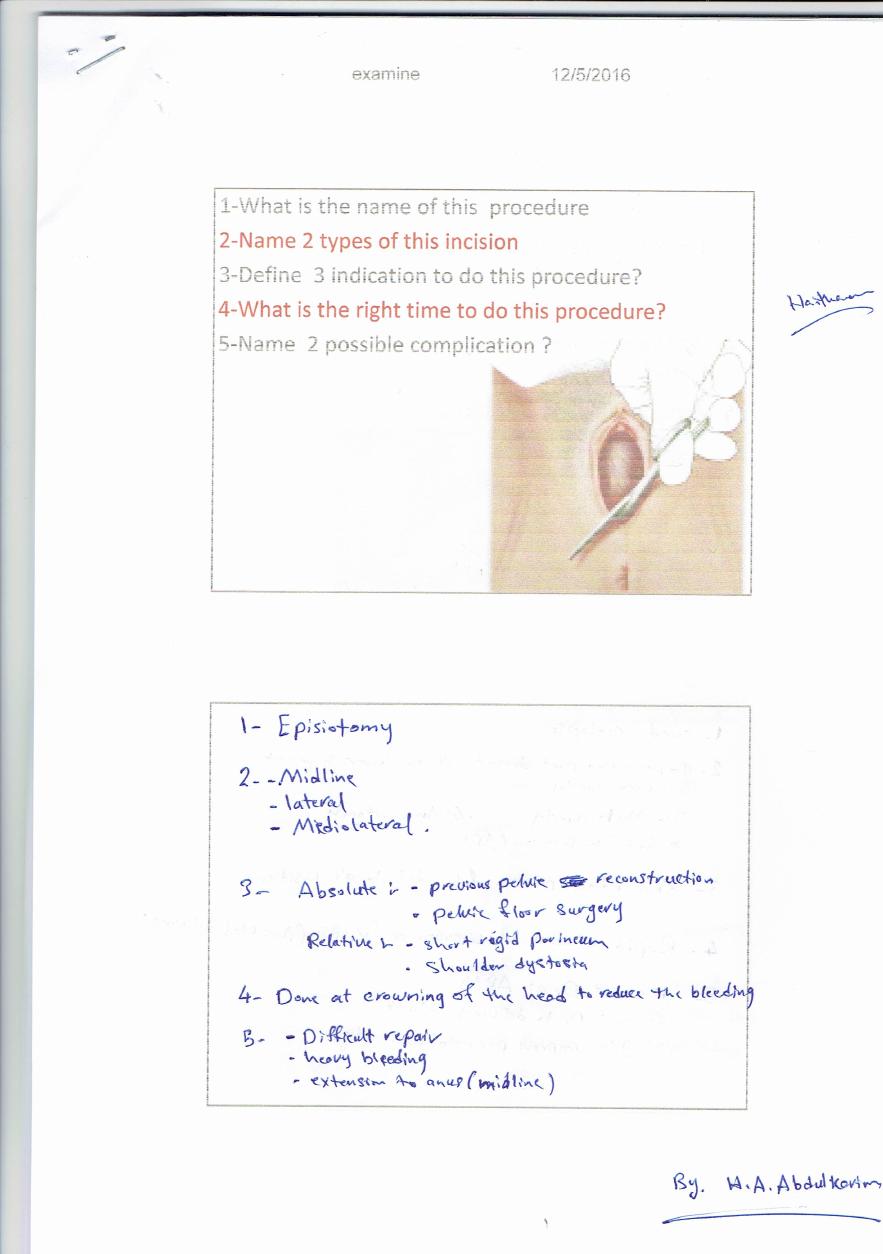 examine 12/5/2016
1-What is the name of this procedure
2-Name 2 types of this incision
3-Define 3 indication to do this procedure?
4-What is the right time to do this procedure?
5-Name 2 possible complication ?
Haitham
1- Episiotomy
2- - Midline
- lateral
- Mediolateral .
3- Absolute :- - previous pelvic reconstruction
- pelvic floor surgery
Relative :- - short rigid perineum
- shoulder dystosia
4- Done at crowning of the head to reduce the bleeding
5- - Difficult repair
- heavy bleeding
- extension to anus (midline)
By. H.A.Abdulkarim